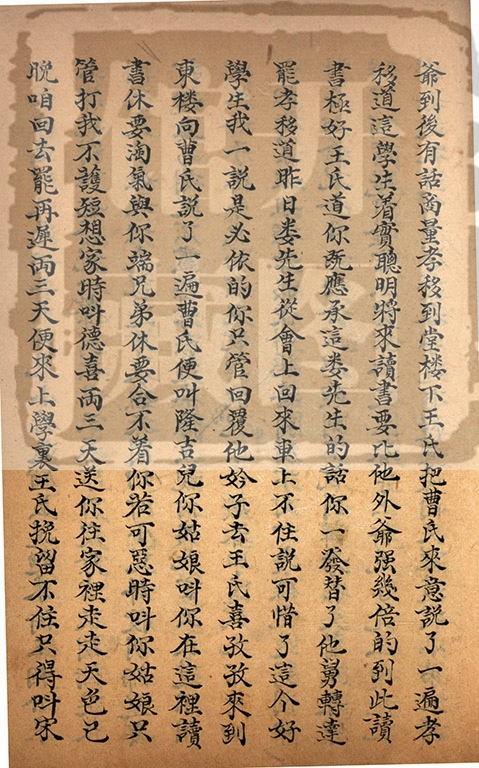 爺到後有話商量孝移到堂楼下王氏把曹氏來意說了一遍孝
移道這學生着實聰明將來讀書要比他外爺强幾倍的到此讀
書極好王氏道你既應承這娄先生的話你一發替了他舅轉達
罷孝移道昨日娄先生從會上回來車上不住說可惜了這个好
學生我一說是必依的你只管回覆他妗子去王氏喜孜孜來到
東楼向曹氏說了一遍曹氏便叫隆吉兒你姑娘叫你在這裡讀
書休要淘氣與你端兄弟休要合不着你若可惡時叫你姑娘只
管打我不護短想家時叫德喜兩三天送你往家裡走走天色已
晚咱回去罷再遲兩三天便來上學裏王氏挽留不住只得叫宋